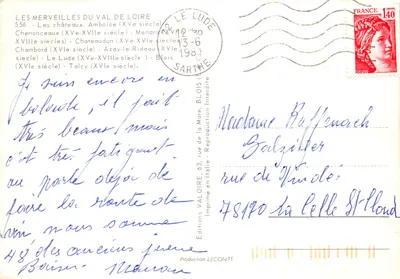 LES MERVEILLES DU VAL DE LOIRE
556 - Les châteaux. Amboise (XVe siècle)
Chenonceaux (XVe-XVIe siècle) - Menars
XVIIIe siècles) - Chaumont (XVe-XVIe
Chambord (XVIe siècle) - Azay-le-Rideau (XVIe
siècle) - Le Lude (XVe-XVIIIe siècle) - Blois
(XVIe siècle) - Talcy (XVIe siècle).
72 LE LUDE
13-6
SARTHE
FRANCE
1,40
Je suis encore en
balade, il fait
très beau mais
c'est très fatigant
on parle déjà de
faire la route de
nous sommes
48 des anciens
Baisers Maman
Editions VALOIRE, 63, rue de la Maire, BLOIS
Imprimé en Italie - Reproduction interdite
Production LECONTE
Madame
rue de
78170 La Celle St Cloud